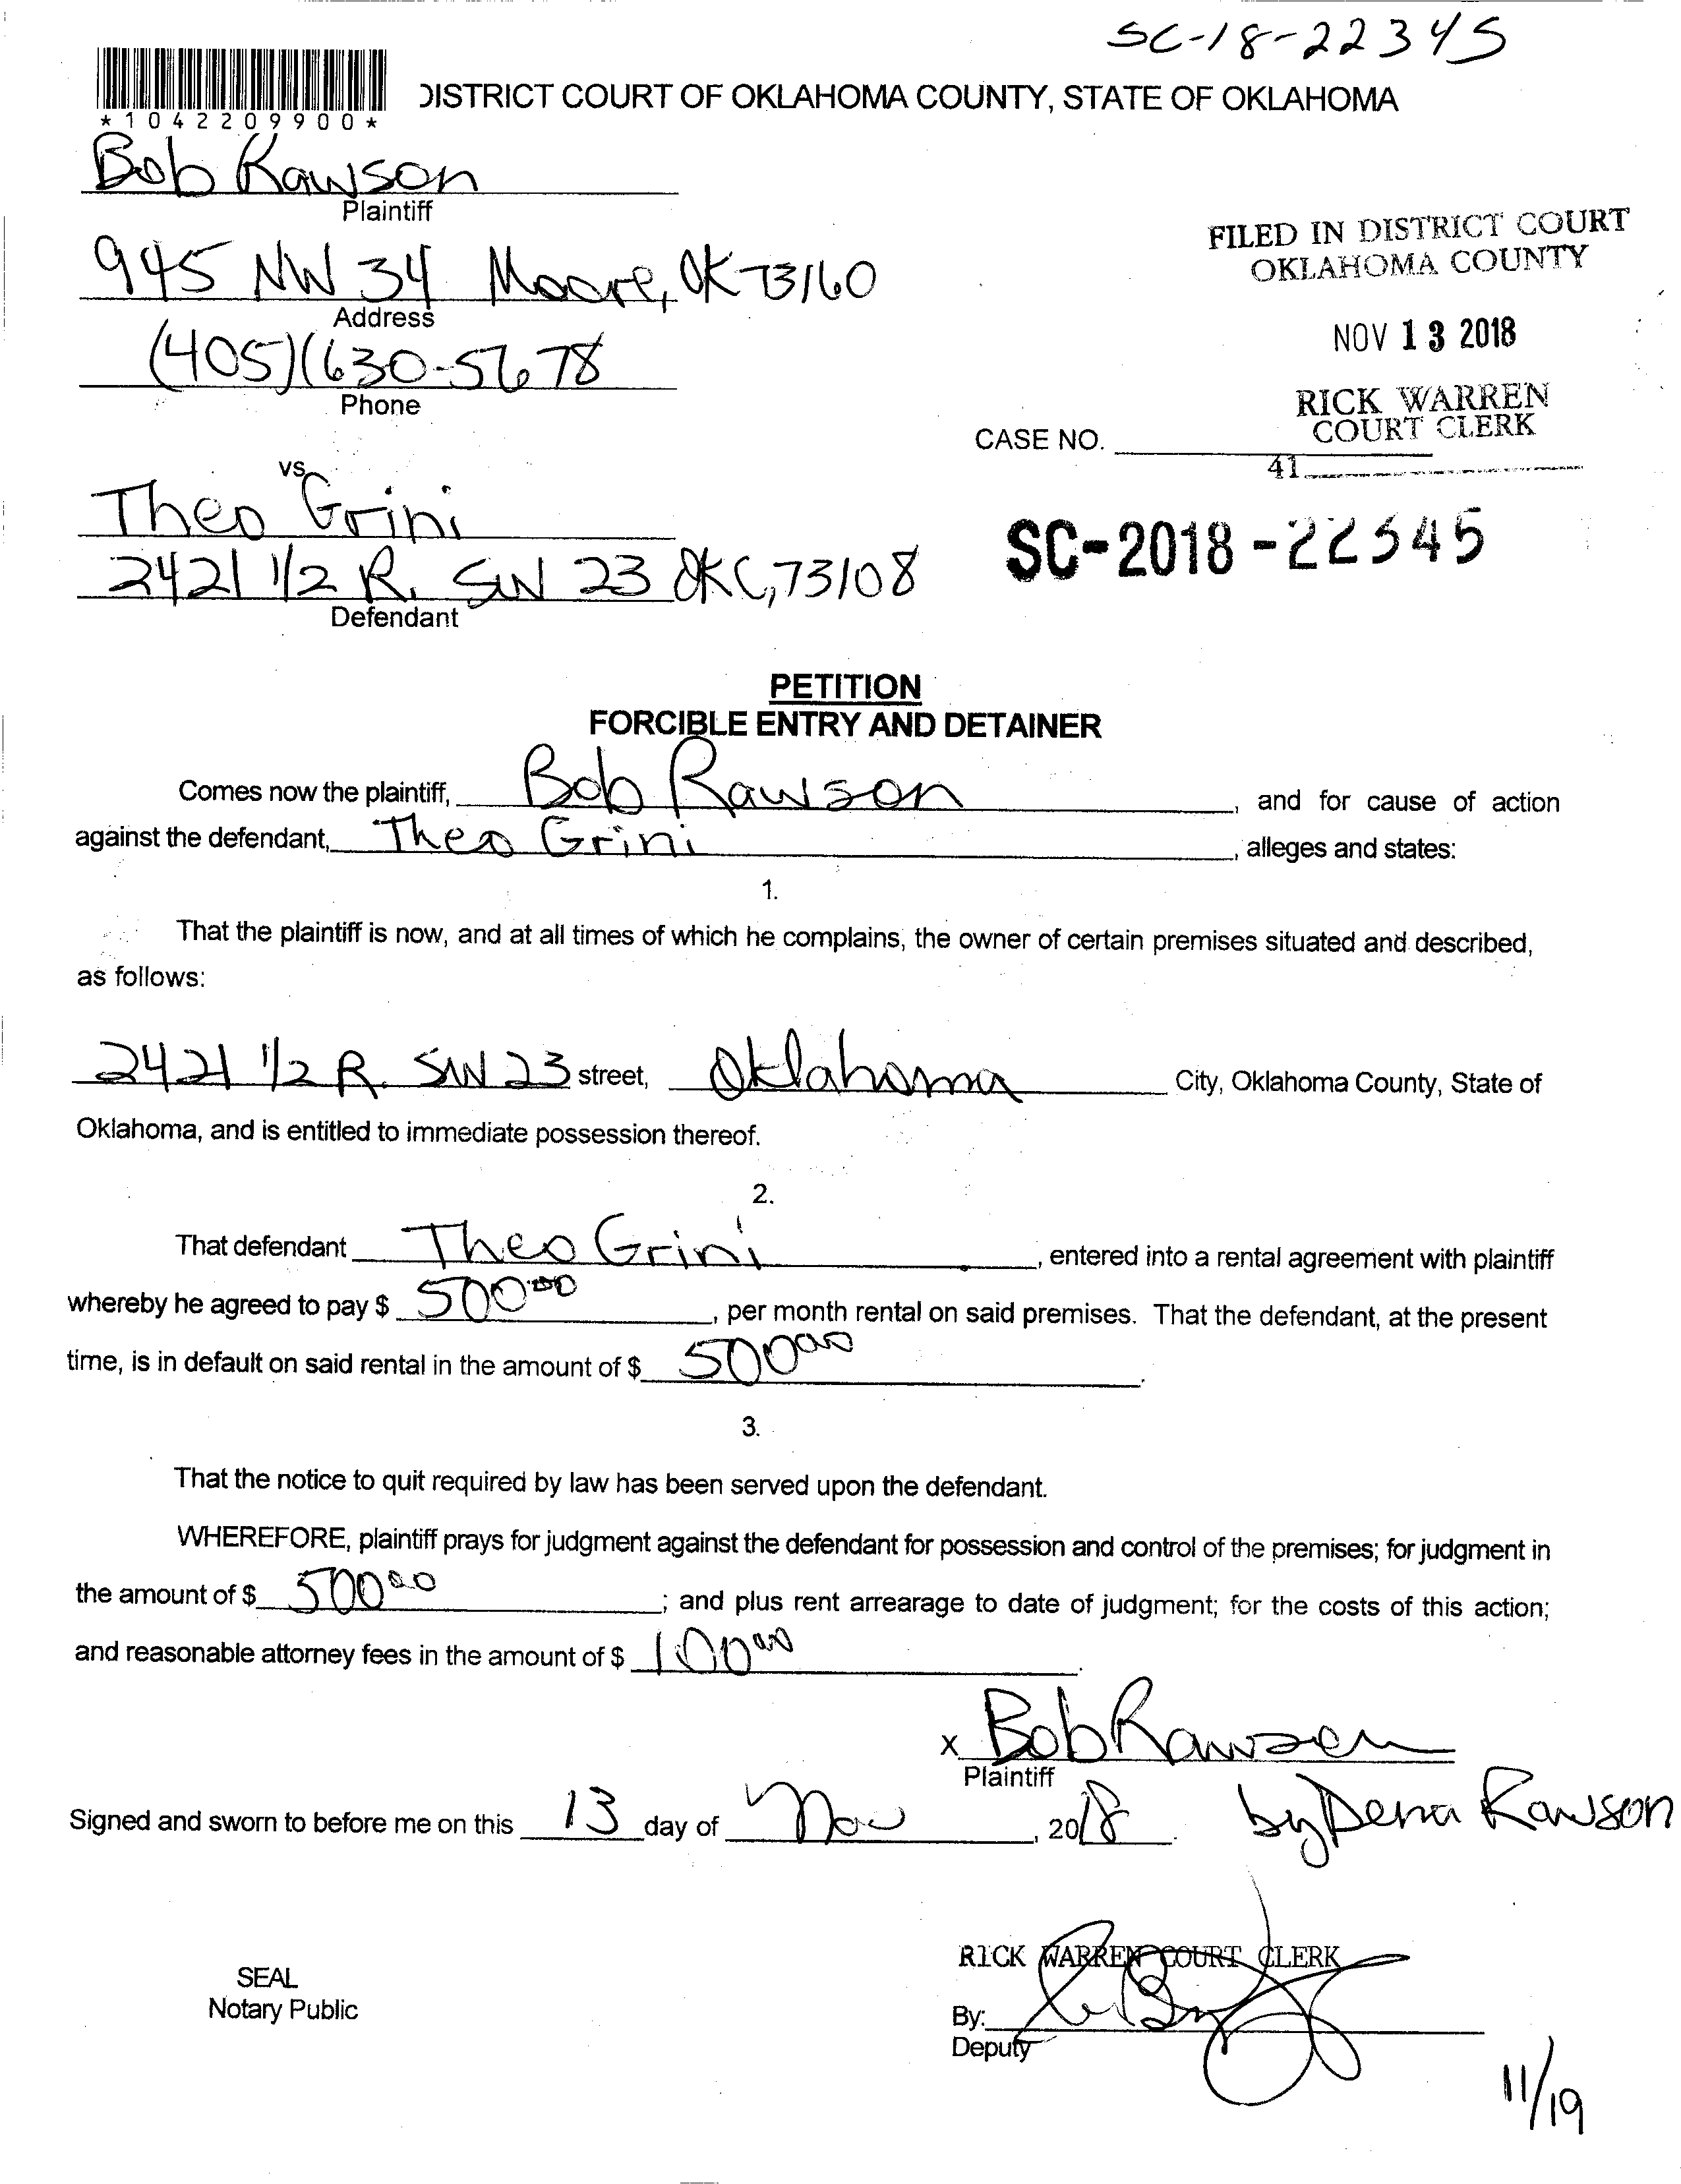 SC-18-22345
*1042209900*
DISTRICT COURT OF OKLAHOMA COUNTY, STATE OF OKLAHOMA
Bob Rawson
Plaintiff
945 NW 34 Moore, OK 73160
Address
(405)(630-5678
Phone
FILED IN DISTRICT COURT
OKLAHOMA COUNTY
NOV 13 2018
RICK WARREN
COURT CLERK
CASE NO.
41
vs.
Theo Grini
2421 1/2 R. SW 23 OKC, 73108
Defendant
SC-2018-22345
PETITION
FORCIBLE ENTRY AND DETAINER
Comes now the plaintiff, Bob Rawson, and for cause of action
against the defendant, Theo Grini, alleges and states:
1.
That the plaintiff is now, and at all times of which he complains, the owner of certain premises situated and described,
as follows:
2421 1/2 R. SW 23 street, Oklahoma City, Oklahoma County, State of
Oklahoma, and is entitled to immediate possession thereof.
2.
That defendant Theo Grini, entered into a rental agreement with plaintiff
whereby he agreed to pay $ 500.00, per month rental on said premises. That the defendant, at the present
time, is in default on said rental in the amount of $ 500 00.
3.
That the notice to quit required by law has been served upon the defendant.
WHEREFORE, plaintiff prays for judgment against the defendant for possession and control of the premises; for judgment in
the amount of $ 500 00; and plus rent arrearage to date of judgment; for the costs of this action;
and reasonable attorney fees in the amount of $ 100 00.
x Bob Rawson
Plaintiff
by Dena Rawson
Signed and sworn to before me on this 13 day of Nov, 2018.
RICK WARREN COURT CLERK
SEAL
Notary Public
By:
Deputy
11/19